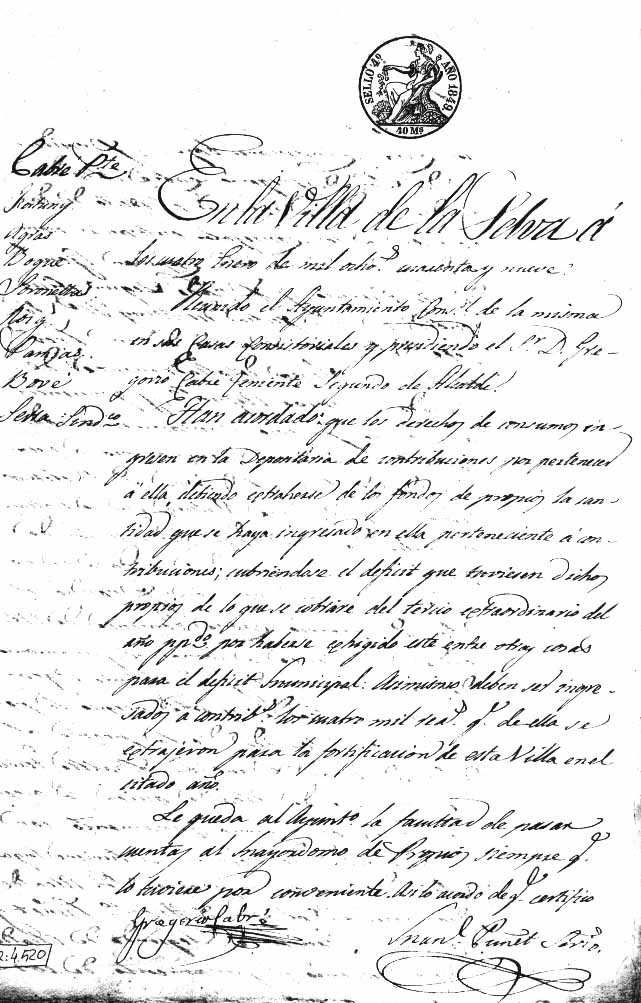 SELLO 4º AÑO 1849.
40 Ms
Cabre Pte
Fortuny
Agras
Boqué
Roig
Bové
Serra Sindco
En la Villa de la Selva á
los cuatro Enero de mil ochos cuarenta y nueve.
el Ayuntamiento Consl de la misma
en sus Casas Consistoriales y presidiendo el Sr. D. Gre-
gorio Cabre Temiente Segundo de Alcalde.
Han acordado: que los derechos de consumos in-
gresen en la Depositaria de contribuciones por pertenecer
á ella, debiendo extraherse de los fondos de propios la can-
tidad que se haya ingresado en ella perteneciente á con-
tribuciones; cubriendose el deficit que tuviesen dichos
propios de lo que se cobrare del tercio extraordinario del
año ppdo por haberse exhigido este entre otras cosas
para el deficit municipal. Asimismo deben ser ingre-
sados á contribs los cuatro mil reas q. de ella se
extrajeron para la fortificacion de esta Villa en el
citado año.
Le queda al Ayunto la facultad de pasar
cuentas al Mayordomo de Propios siempre q.
lo tuviere por conveniente. Asi lo acordó de q. certifico
Gregorio Cabré
Manl Punet Serio.
2:4.520